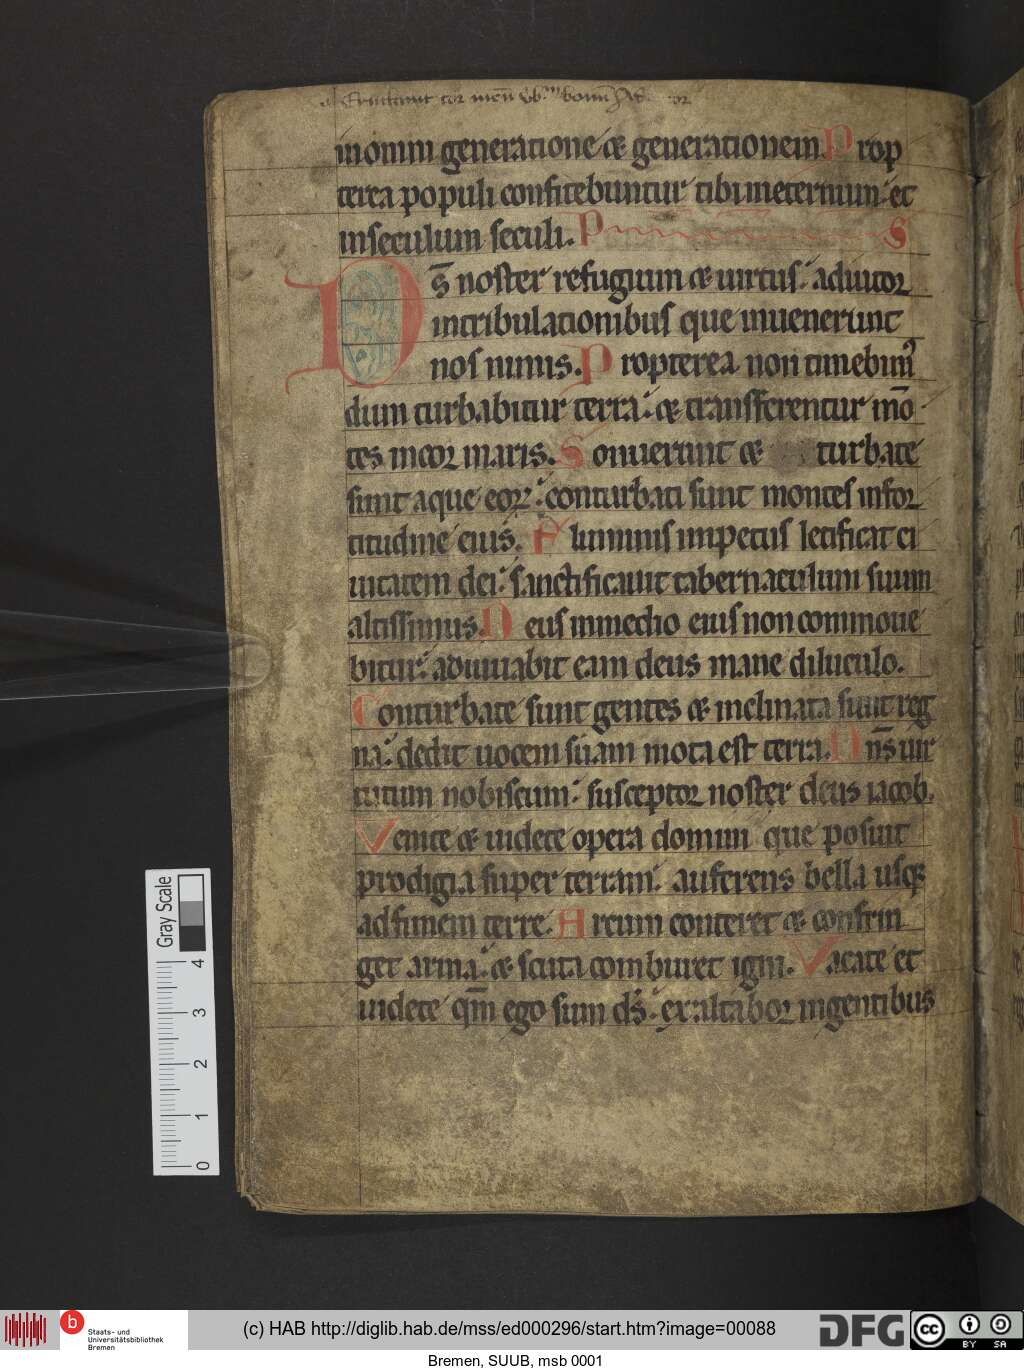 Eructavit cor meu vb bonu
inomni generatione & generationem. Prop
terea populi confitebuntur tibi ineternum: et
inseculum seculi. P S
Ds̄ noster refugium & uirtus: adiutor
intribulationibus que inuenerunt
nos nimis. Propterea non timebimꝰ
dum turbabitur terra: & transferentur mō
tes incor maris. Sonuerunt & turbate
sunt aque eoꝝ: conturbati sunt montes infor
titudine eius. Fluminis impetus letificat ci
uitatem dei: sanctificauit tabernaculum suum
altissimus. Deus inmedio eius non commoue
bitur: adiuuabit eam deus mane diluculo.
Conturbate sunt gentes & inclinata sunt reg
na: dedit uocem suam mota est terra. Dn̄s uir
tutum nobiscum: susceptor noster deus iacob.
Venite & uidete opera domini que posuit
prodigia super terram: auferens bella usqꝫ
adfinem terre. Arcum conteret & confrin
get arma: & scuta comburet igni. Vacate et
uidete qm̄ ego sum ds̄: exaltabor ingentibus
Gray Scale
4
3
2
1
0
b
Staats- und
Universitätsbibliothek
Bremen
(c) HAB http://diglib.hab.de/mss/ed000296/start.htm?image=00088
DFG
cc
BY SA
Bremen, SUUB, msb 0001